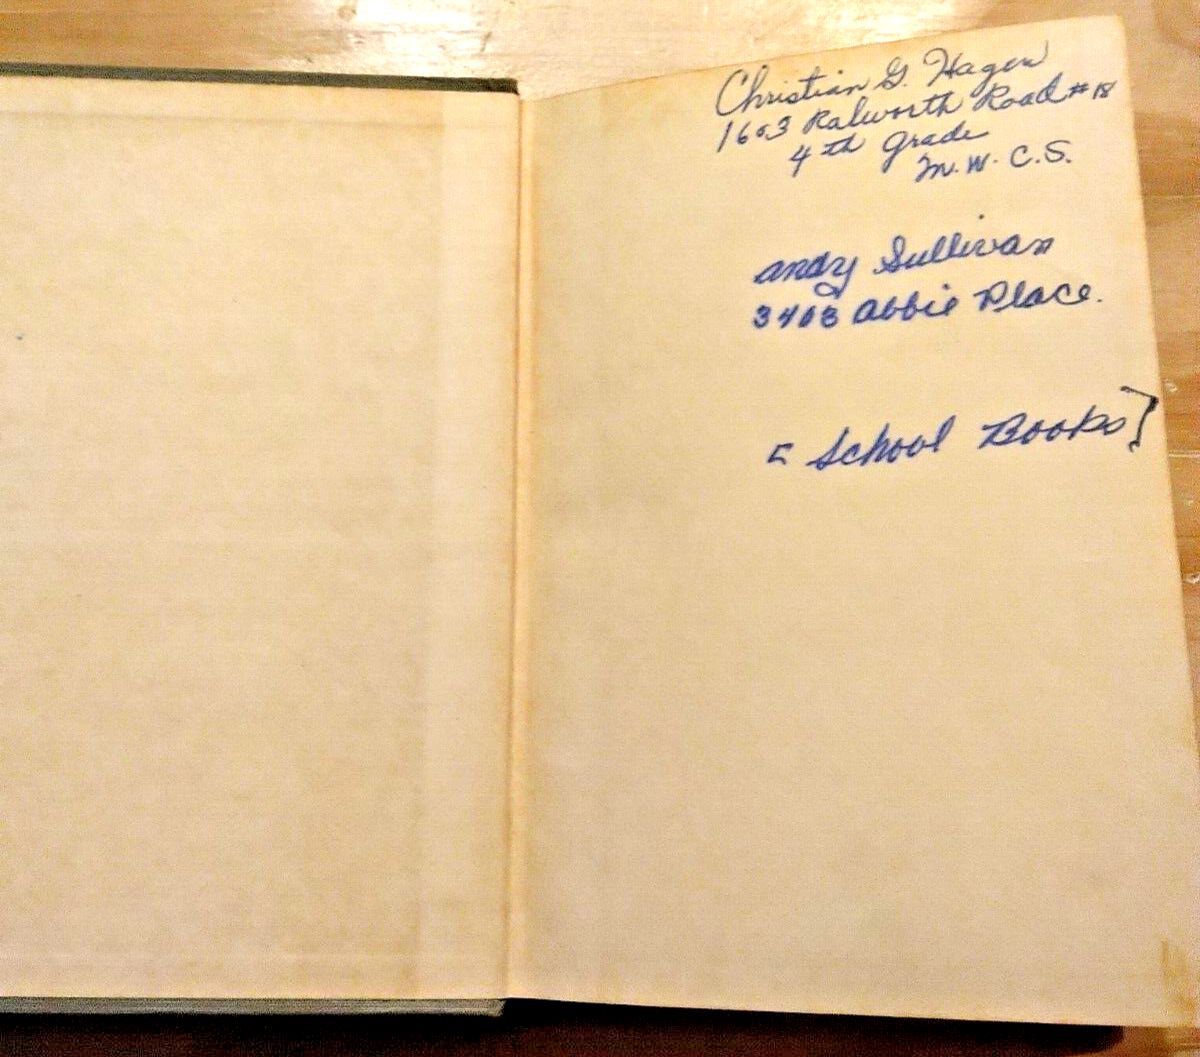 Christian G. Hagen
1603 Ralworth Road #18
4th grade
M.W. C.S.
andy Sullivan
3403 abbie Place.
[ School Books ]